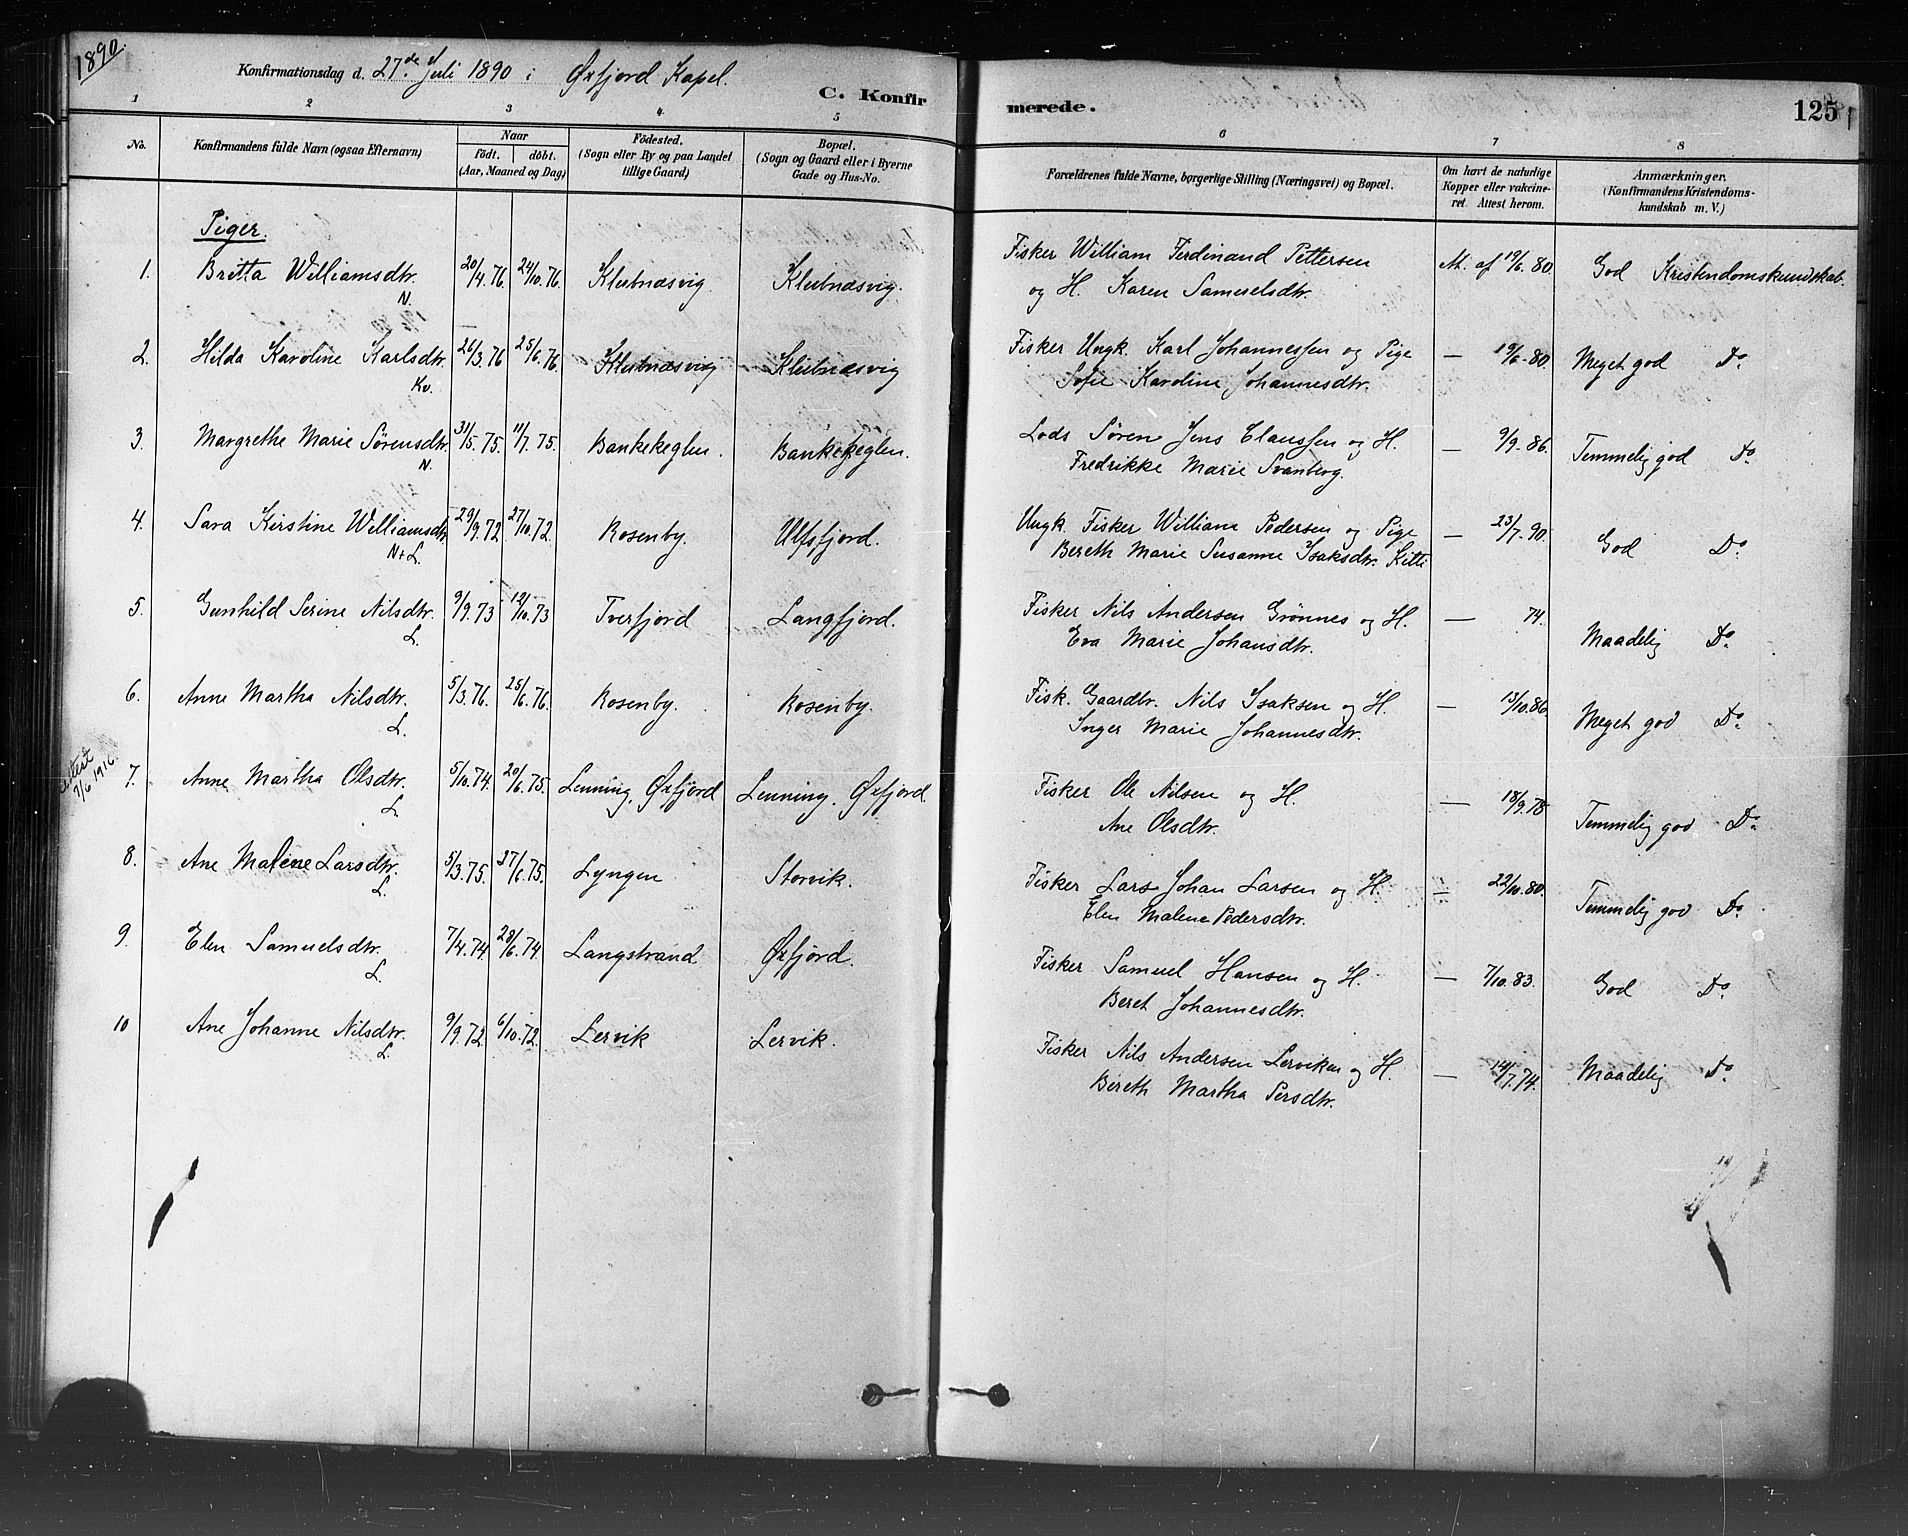 1890.
Konfirmationsdag d. 27de Juli 1890 i Øxfjord Kapel.
C. Konfirmerede.
125
1 2 3 4 5 6 7 8
No.
Konfirmandens fulde Navn (ogsaa Efternavn)
Naar
födt. döbt.
(Aar, Maaned og Dag)
Födested.
(Sogn eller By og paa Landet
tillige Gaard)
Bopæl.
(Sogn og Gaard eller i Byerne
Gade og Hus-No.
Forældrenes fulde Navne, borgerlige Stilling (Næringsvei) og Bopæl.
Om havt de naturlige
Kopper eller vakcine-
ret. Attest herom.
Anmærkninger.
(Konfirmandens Kristendoms-
kundskab m. V.)
Piger.
1. Britta Williamsdtr. 20/4.76. 24/10.76. Klubnæsvig. Klubnæsvig. Fisker William Ferdinand Pettersen At. af 19/6.80. God Kristendomskundskab.
N. og H. Karen Samuelsdtr.
2. Hilda Karoline Karlsdtr. 26/3.76 25/6.76. Klubnæsvig Klubnæsvig Fisker Ungk. Karl Johannessen og Pige — 19/6-80. Meget god Do.
Kv. Sofie Karoline Johannesdtr.
3. Margrethe Marie Sørensdtr. 31/5.75. 11/7.75. Bankekeglen. Bankekeglen. Lods Søren Jens Clanssen og H. — 9/9.86. Temmelig god Do.
N. Fredrikke Marie Svanberg.
4. Sara Kirstine Williamsdtr. 29/9.72 27/10.72. Rosenby. Ulfsfjord. Ungk. Fisker William Pedersen og Pige — 23/7.90. God Do.
N+L. Bereth Marie Susanne Isaksdtr. Kitti
5. Gunhild Serine Nilsdtr. 9/9.73 12/10.73 Tverfjord Langfjord. Fisker Nils Andersen Grønnes og H. — 74. Maadelig Do.
L. Eva Marie Johansdtr.
6. Anne Martha Nilsdtr. 5/3.76. 25/6.76. Rosenby. Rosenby. Fisk. Gaardbr. Nils Isaksen og H. — 13/10.86. Meget god Do.
L. Inger Marie Johannesdtr.
7/6 1916.
7. Anne Martha Olsdtr. 5/10.74. 20/6.75. Lenning, Øxfjord Lenning, Øxfjord Fisker Ole Nilsen og H. — 18/9.78 Temmelig god Do.
L. Ane Olsdtr.
8. Ane Malene Larsdtr. 5/3.75. 27/6.75. Lyngen Storvik. Fisker Lars Johan Larsen og H. — 22/10.80. Temmelig god Do.
L. Elen Malene Pedersdtr.
9. Elen Samuelsdtr. 7/4.74. 28/6.74. Langstrand Øxfjord. Fisker Samuel Hansen og H. — 7/10.83. God Do.
L. Beret Johannesdtr.
10 Ane Johanne Nilsdtr. 9/9.72. 6/10.72. Lervik Lervik. Fisker Nils Andersen Lerviken og H. — 14/7.74. Maadelig Do.
L. Bereth Martha Persdtr.